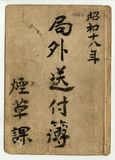 昭和十八年
局外送付簿
煙草課